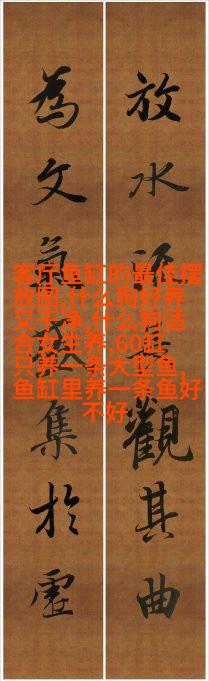 放水觀其曲
為文氣集於虛
客厅鱼缸的最佳摆
放图,什么狗好养
又干净,什么狗适
合女生养,60缸
只养一条大型鱼,
鱼缸里养一条鱼好
不好